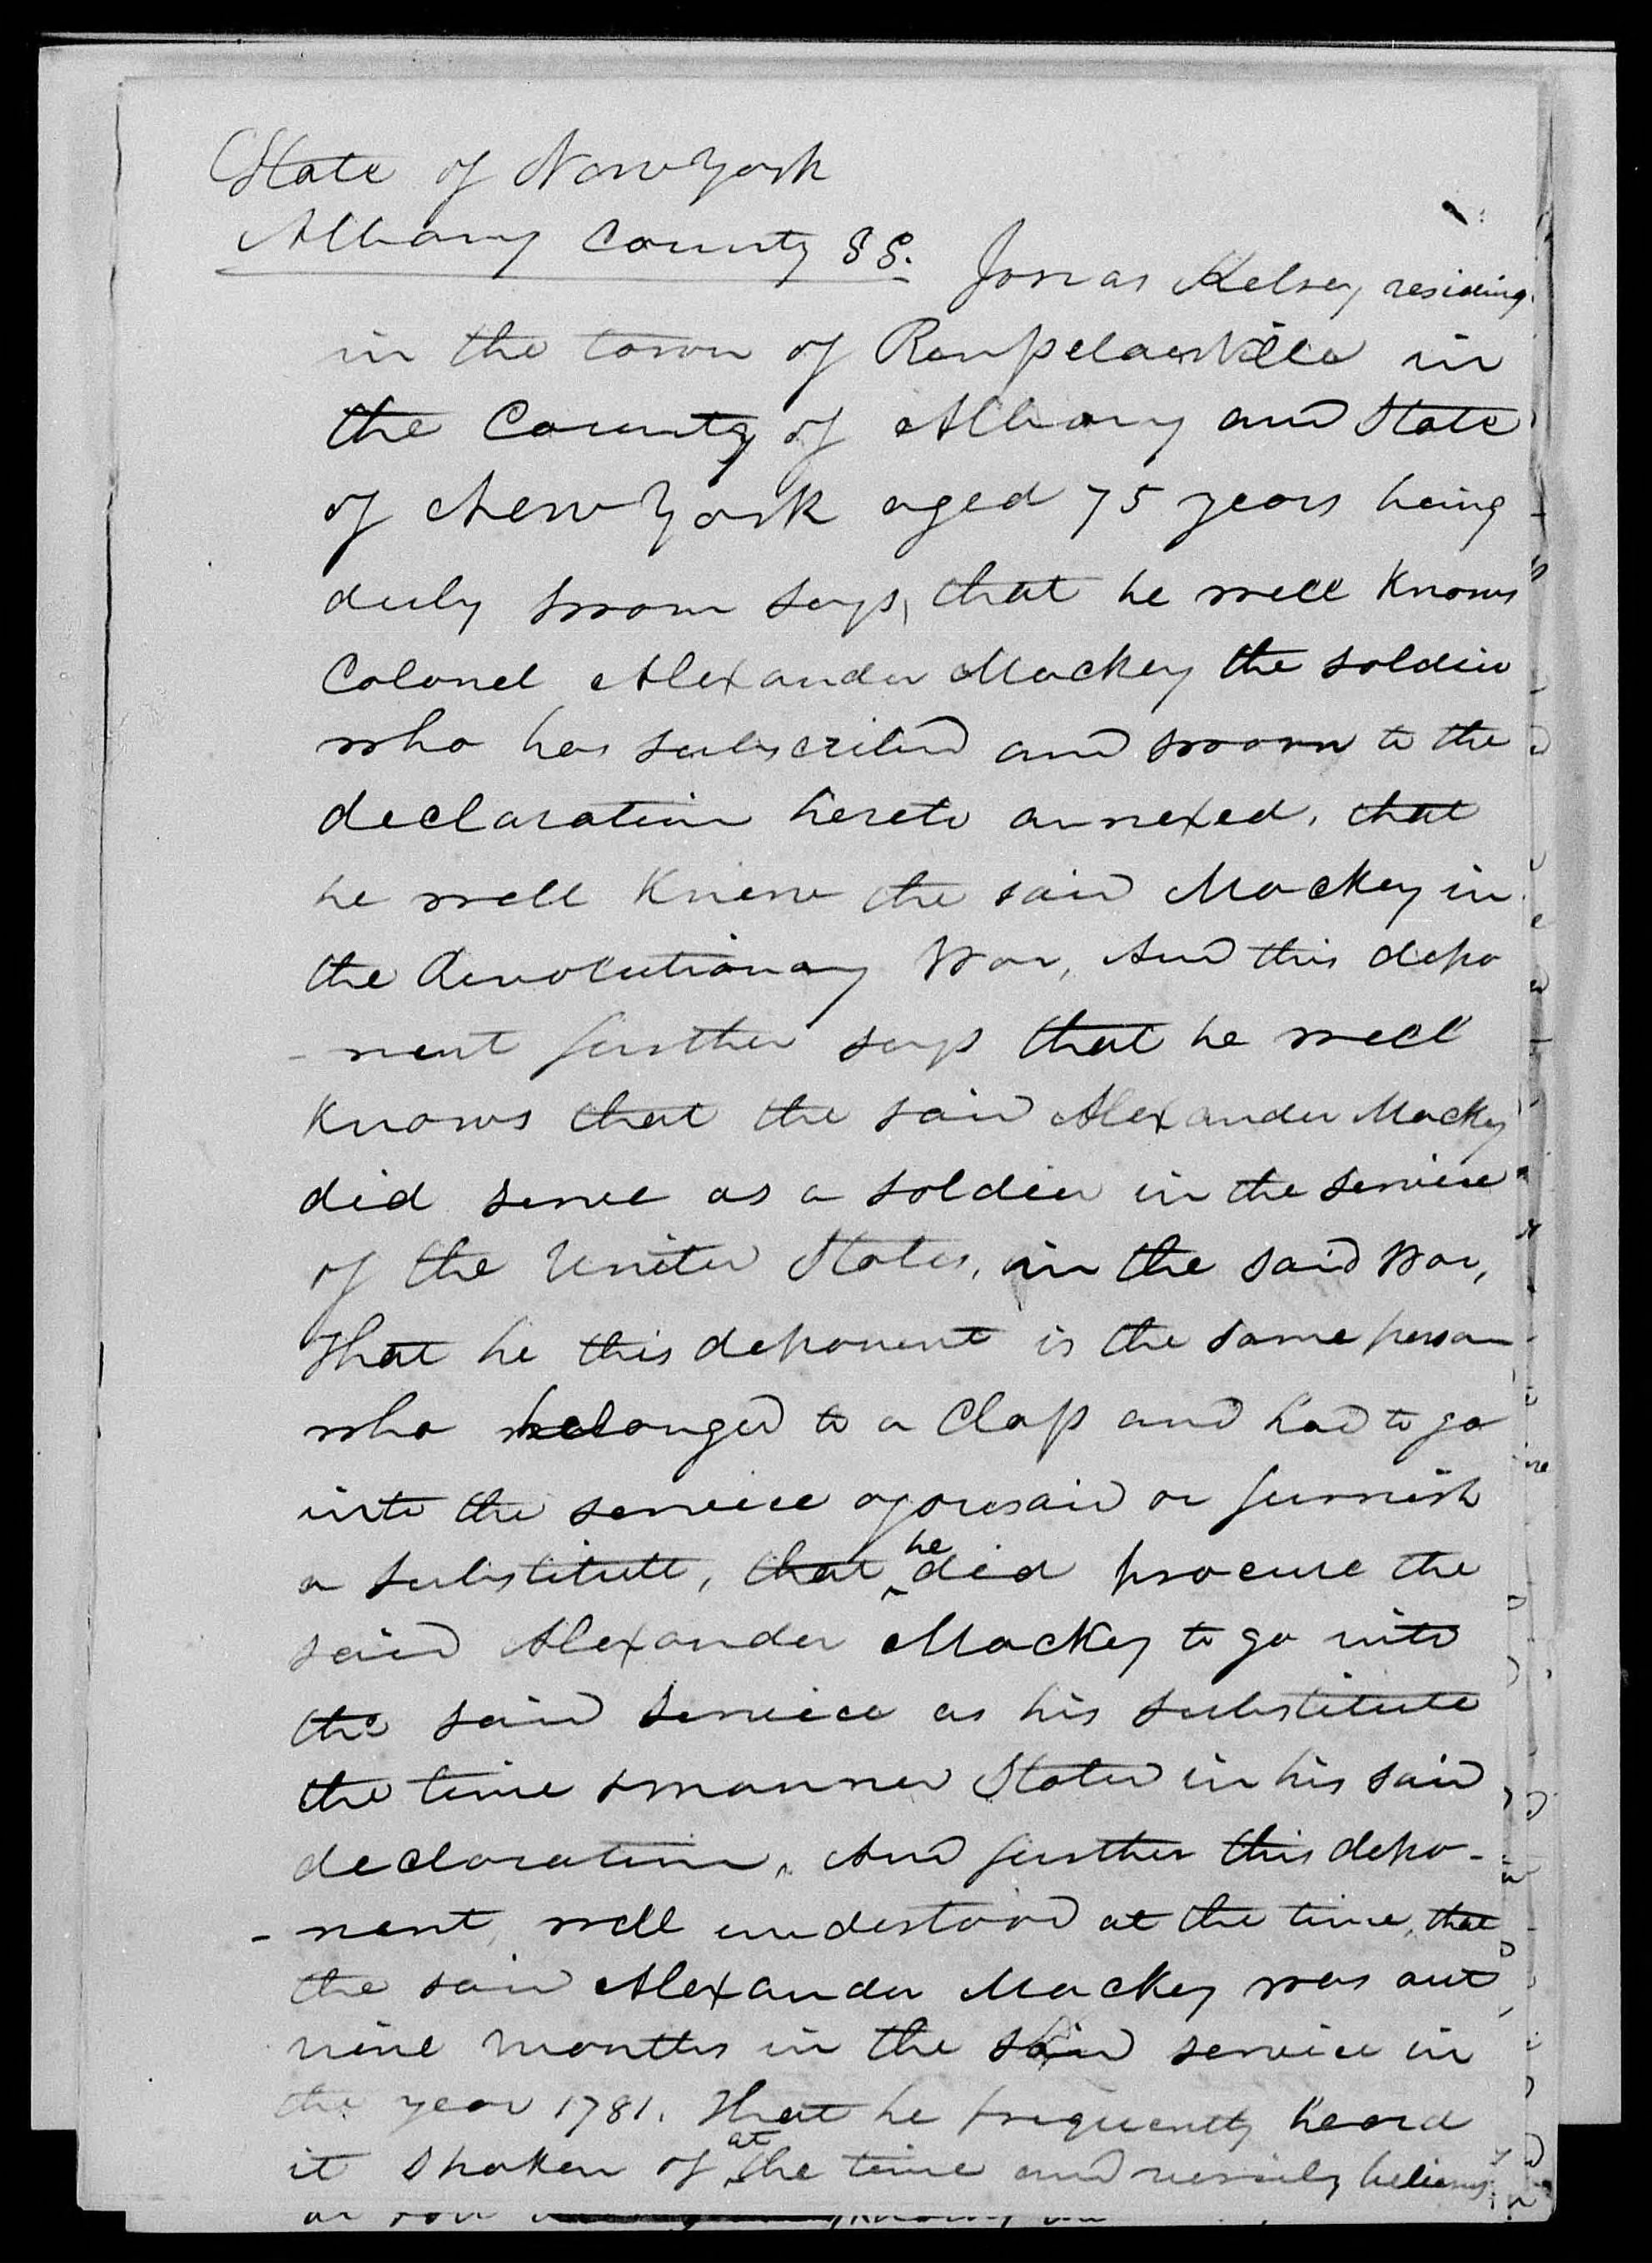 State of New York
Albany County SS.
Jonas Kelsey residing
in the town of Rensselaerville in
the County of Albany and State
of New York aged 75 years being
duly sworn says, that he well knows
Colonel Alexander Mackey the soldier
who has subscribed and sworn to the
declaration hereto annexed, that
he well knew the said Mackey in
the Revolutionary War, And this depo
-nent further says that he well
knows that the said Alexander Mackey
did serve as a soldier in the service
of the United States, in the said War,
That he this deponent is the same person
who belonged to a Class and had to go
into the service aforesaid or furnish
a substitute, that he did procure the
said Alexander Mackey to go into
the said service as his substitute
the time & manner Stated in his said
declaration, And further this depo-
-nent, well understood at the time, that
the said Alexander Mackey was out
nine months in the said service in
the year 1781. That he frequently heard
it spoken of at the time and verily believes